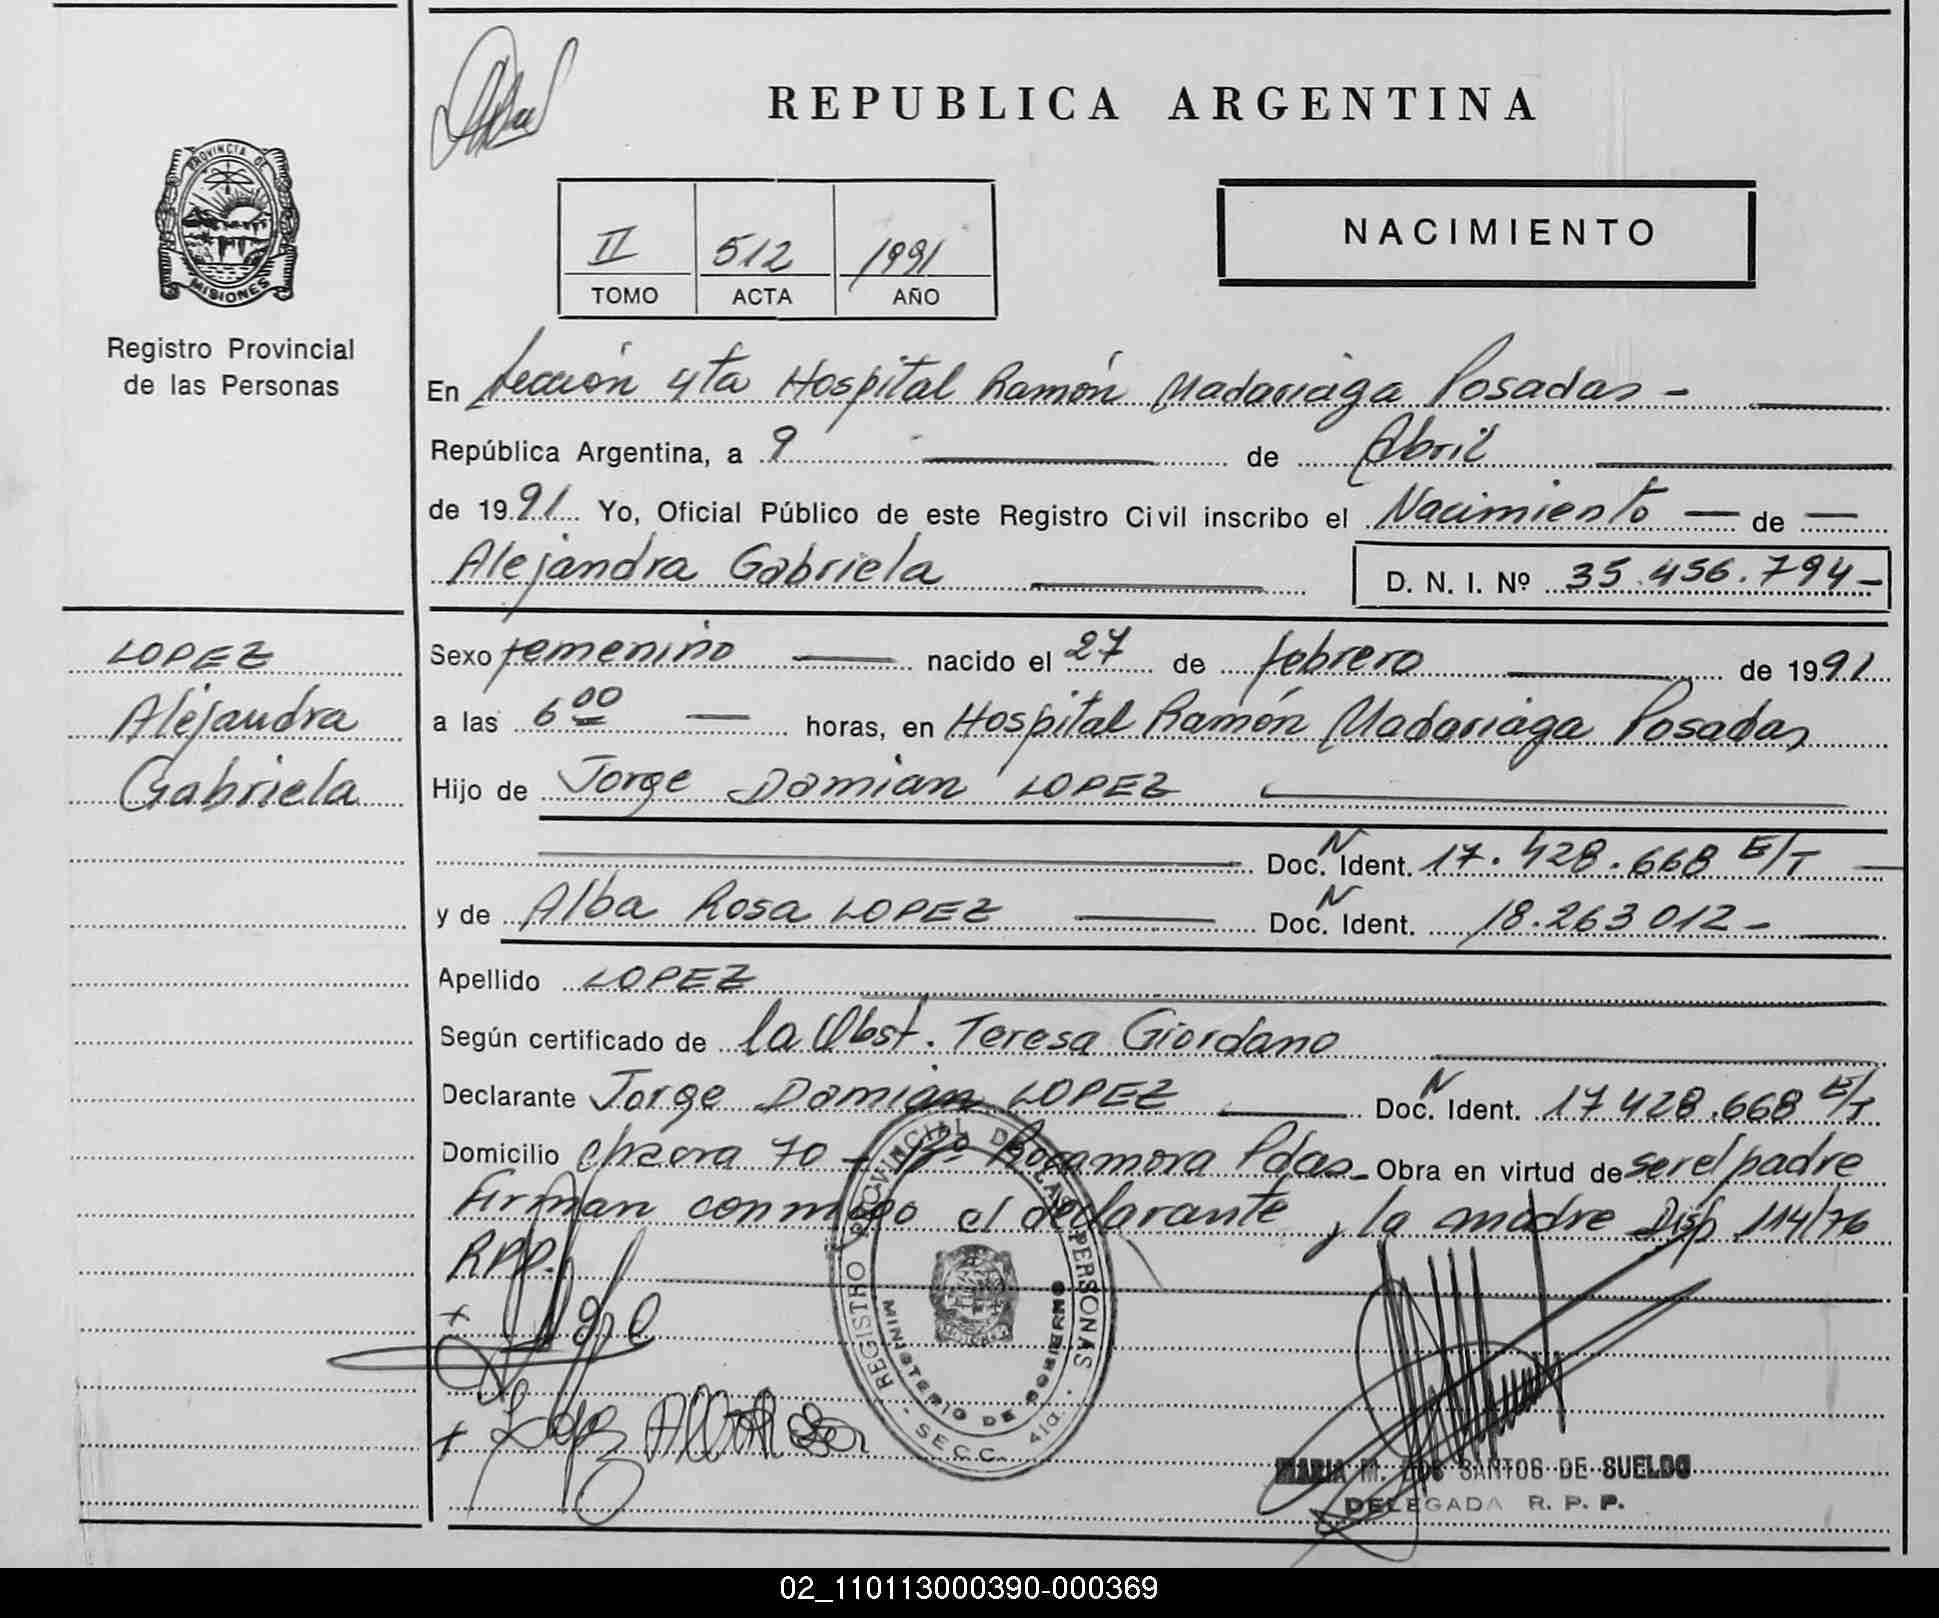 REPUBLICA ARGENTINA
PROVINCIA DE
MISIONES
Registro Provincial
de las Personas
II 512 1991
TOMO ACTA AÑO
NACIMIENTO
En Sección 4ta Hospital Ramón Madariaga Posadas -
República Argentina, a 9 de Abril
de 1991 Yo, Oficial Público de este Registro Civil inscribo el Nacimiento — de —
Alejandra Gabriela D. N. I. Nº 35.456.794-
LOPEZ
Alejandra
Gabriela
Sexo femenino nacido el 27 de febrero de 1991
a las 6 00 horas, en Hospital Ramón Madariaga Posadas
Hijo de Jorge Damian LOPEZ
Doc. N Ident. 17.428.668 E/T
y de Alba Rosa LOPEZ Doc. N Ident. 18.263012-
Apellido LOPEZ
Según certificado de la Obst. Teresa Giordano
Declarante Jorge Damián LOPEZ Doc. N Ident. 17428.668 E/T
Domicilio chacra 70 - Bº Rocamora Pdas- Obra en virtud de ser el padre
Firman conmigo el declarante y la madre Disp 114/76
RPP.
REGISTRO PROVINCIAL DE LAS PERSONAS - SECC. 4ta. -
MINISTERIO DE GOBIERNO
MARIA M. DOS SANTOS DE SUELDO
DELEGADA R. P. P.
02_110113000390-000369